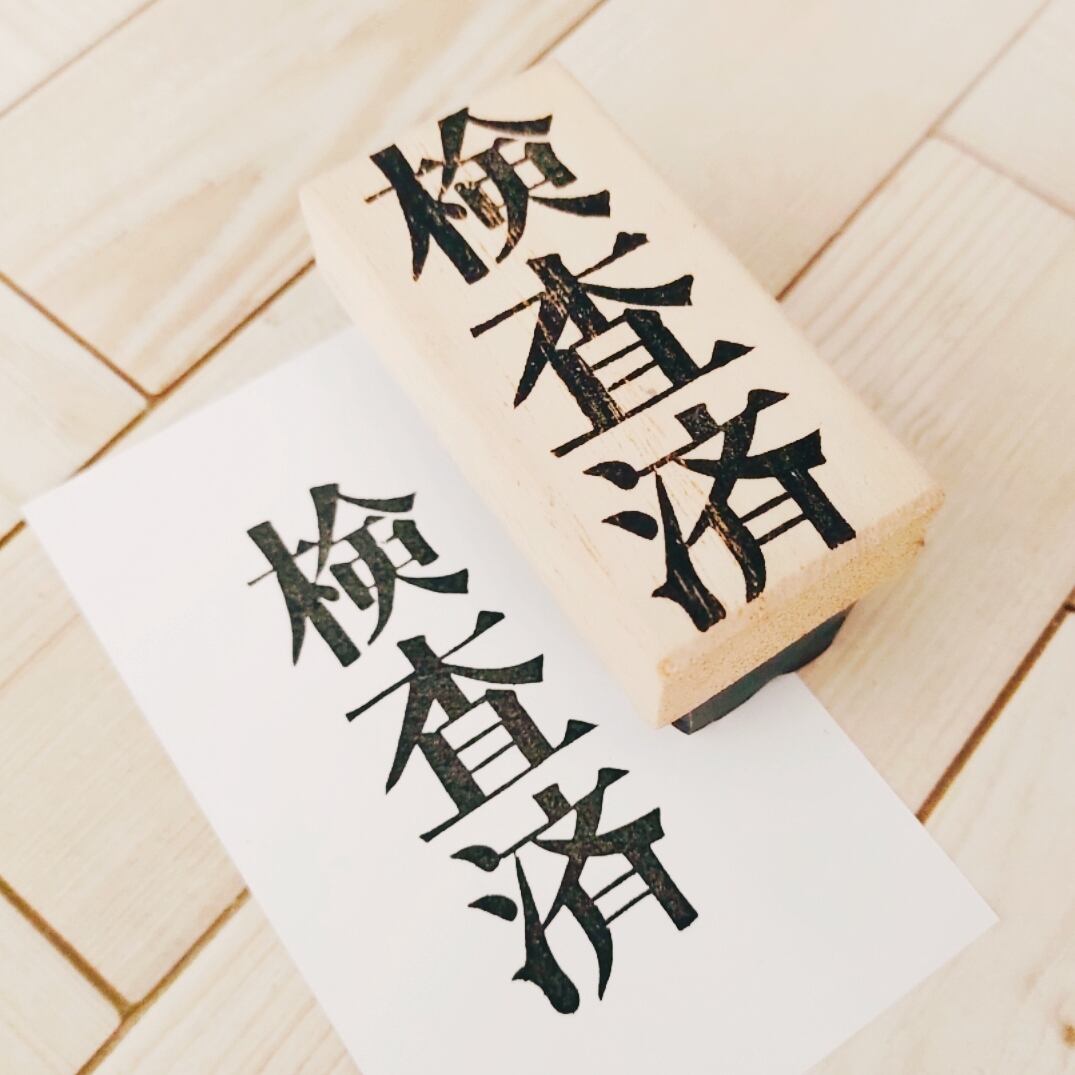 検査済
検査済